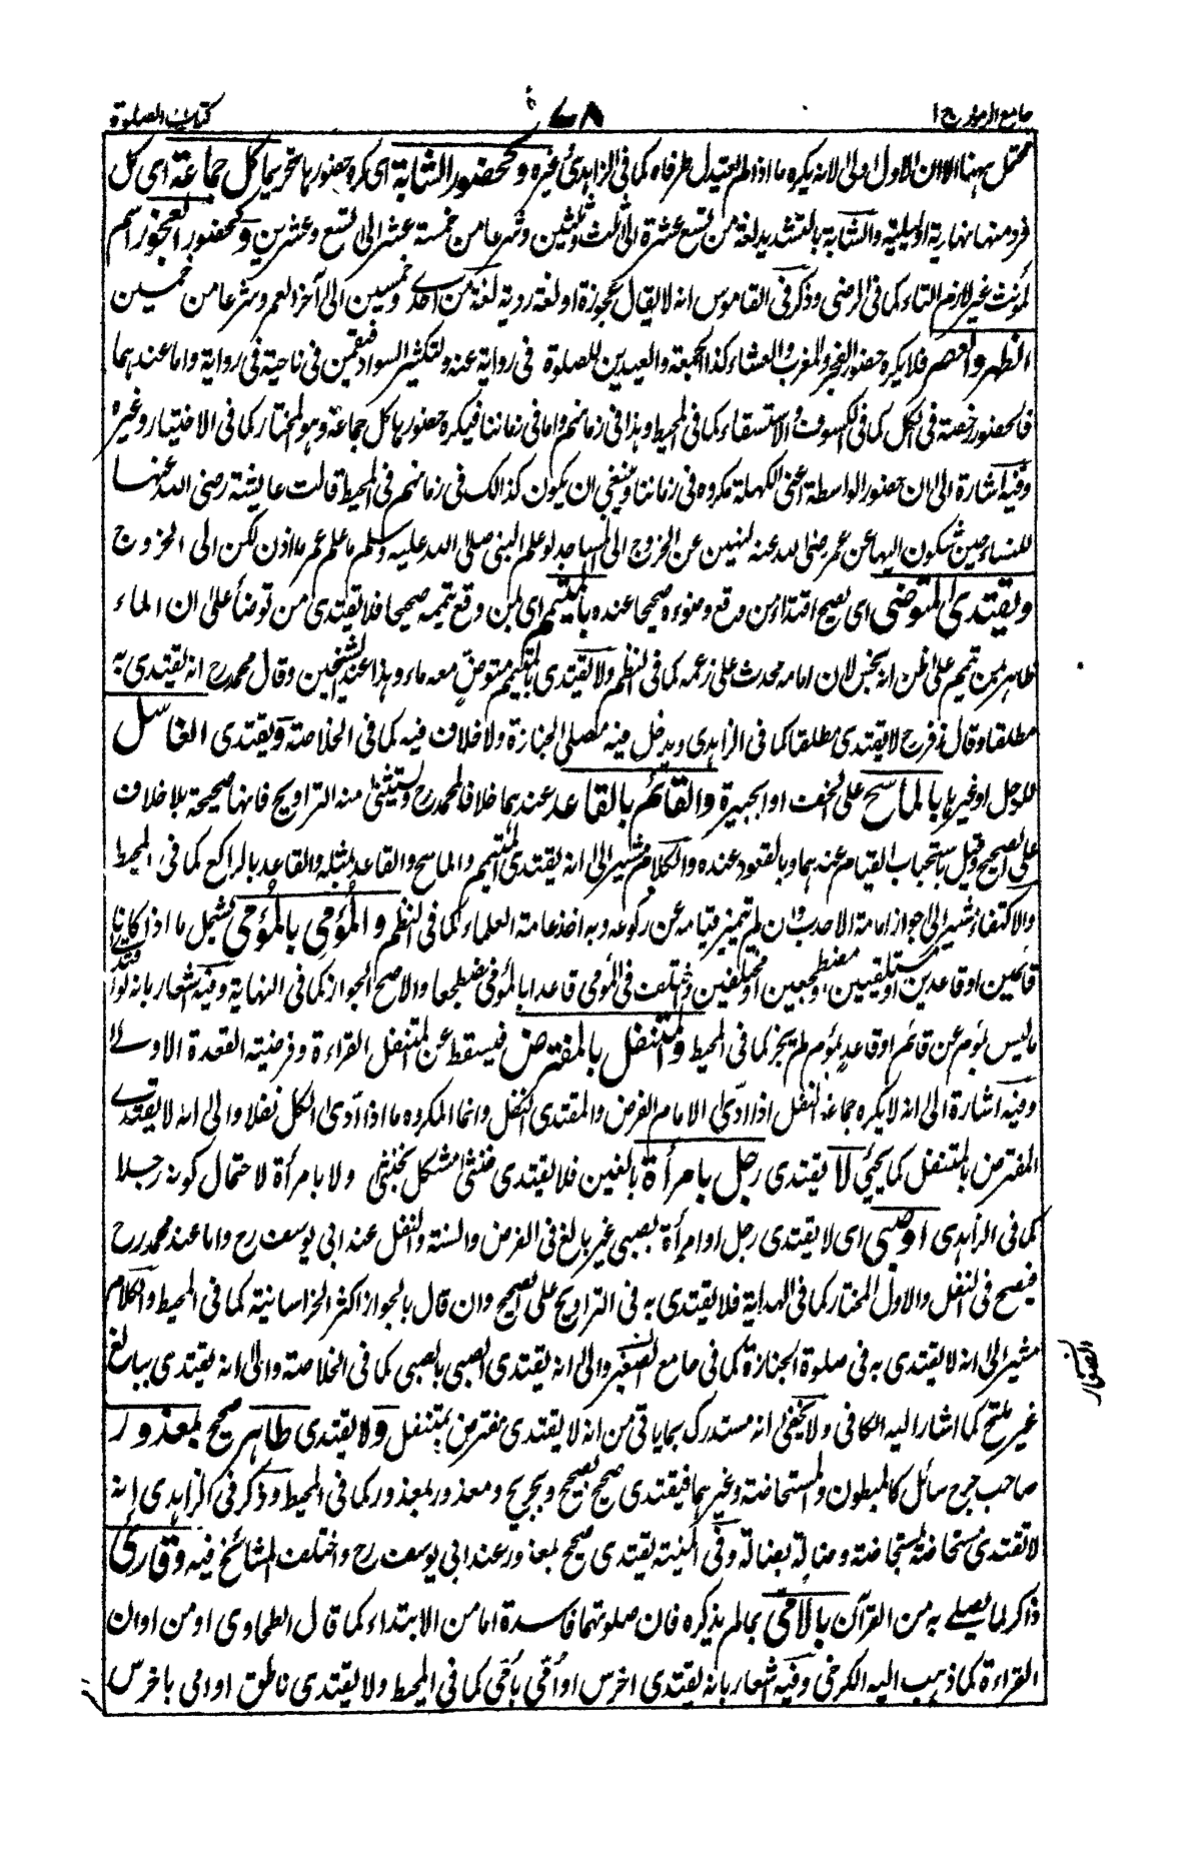 جامع الرموز ج ١
٧٨
كتاب الصلوة
محتمل ههنا الا ان الاول اولى لانه يكره ما اذا لم يعتدل طرفاه كما فى الزاهدى وغيره وكحضور الشابة اى كره حضورها تحريما كل جماعة اى كل
فرد منها نهارية او ليلية والشابة بالتشديد لغة من تسع عشرة الى ثلث وثلثين وشرعا من خمسة عشر الى تسع وعشرين وكحضور العجوز اسم
لمؤنث غير لازم التاء كما فى الرضى وذكر فى القاموس انه لا يقال عجوزة او لغة ردية لغة من احدى وخمسين الى آخر العمر وشرعا من خمسين
الظهر والعصر فلا يكره حضور الفجر والمغرب والعشاء كذا الجمعة والعيدين للصلوة فى رواية عنه ولتكثير السواد فيقمن فى ناحية فى رواية واما عندهما
فالحضور رخصة فى الكل كما فى الكسوف والاستسقاء كما فى المحيط وهذا فى زمانهم واما فى زماننا فيكره حضورها كل جماعة وهو المختار كما فى الاختيار وغيره
وفيه اشارة الى ان حضور الواسطة اعنى الكهلة مكروه فى زماننا وينبغى ان يكون كذالك فى زمانهم فى المحيط قالت عايشة رضى الله عنها
للنساء حين شكون اليها عن عمر رضى الله عنه لنهيهن عن الخروج الى المساجد لو علم النبى صلى الله عليه وسلم ما علم عمر ما اذن لكن الى الخروج
ويقتدى المتوضى اى يصح اقتداء من وقع وضوءه صحيحا عنده بالمتيمم اى بمن وقع تيممه صحيحا فلا يقتدى من توضأ على ان الماء
طاهر بمن تيمم على ظن انه نجس لان امامه محدث على زعمه كما فى النظم ولا يقتدى بالمتيمم متوضٍ معه ماء وهذا عند الشيخين وقال محمد رح انه يقتدى به
مطلقا وقال زفر رح لا يقتدى مطلقا كما فى الزاهدى ويدخل فيه مصلى الجنازة ولا خلاف فيه كما فى الخلاصة ويقتدى الغاسل
للرجل او غيرها بالماسح على الخف او الجبيرة والقائم بالقاعد عندهما خلافا لمحمد رح ويستثنى منه التراويح فانها صحيحة بلا خلاف
على الصحيح وقيل باستحباب القيام عندهما وبالقعود عنده والكلام مشير الى انه يقتدى المتيمم والماسح والقاعد بمثله والقاعد بالراكع كما فى المحيط
والاكتفاء مشير الى جواز امامة الاحدب وان لم تميز قيامه عن ركوعه وبه اخذ عامة العلماء كما فى النظم والمؤمى بالمؤمى يشمل ما اذا كانا
قائمين او قاعدين او مستلقيين او مضطجعين او مختلفين واختلف فى المؤمى قاعدا بالمؤمى مضطجعا والاصح الجواز كما فى النهاية وفيه اشعار بانه لو اقتدى
ما ليس بمؤم عن قائم او قاعد بمؤم لم يجز كما فى المحيط والمتنفل بالمفترض فيسقط عن المتنفل القراءة وفرضيته القعدة الاولى
وفيه اشارة الى انه لا يكره جماعة النفل اذا ادّى الامام الفرض والمقتدى النفل وانما المكروه ما اذا ادّى الكل نفلا والى انه لا يقتدى
المفترض بالمتنفل كما يجئ لا يقتدى رجل بامرأة بالغين فلا يقتدى خنثى مشكل بخنثى ولا بامرأة لاحتمال كونه رجلا
كما فى الزاهدى او صبى اى لا يقتدى رجل او امرأة بصبى غير بالغ فى الفرض والسنة والنفل عند ابى يوسف رح واما عند محمد رح
فيصح فى النفل والاول المختار كما فى الهداية فلا يقتدى به فى التراويح على الصحيح وان قال بالجواز اكثر الخراسانية كما فى المحيط والكلام
مشير الى انه لا يقتدى به فى صلوة الجنازة كما فى جامع الصغير والى انه يقتدى الصبى بالصبى كما فى الخلاصة والى انه يقتدى ببالغ
الصغار
غير ملتح كما اشار اليه الكافى ولا يخفى انه مستدرك بما ياتى من انه لا يقتدى مفترض بمتنفل ولا يقتدى طاهر صحيح بمعذور
صاحب جرح سائل كالمبطون والمستحاضة وغيرهما فيقتدى صحيح بصحيح وبجريح ومعذور بمعذور كما فى المحيط وذكر فى الزاهدى انه
لا تقتدى مستحاضة بمستحاضة وضالة بضالة وفى المنية يقتدى صحيح بمعذور عند ابى يوسف رح واختلف المشائخ فيه وقارئ
ذاكر لما يصلى به من القرآن بالامى بما لم يذكره فان صلوتهما فاسدة اما من الابتداء كما قال الطحاوى او من اوان
القراءة كما ذهب اليه الكرخى وفيه اشعار بانه يقتدى اخرس او امى بأمى كما فى المحيط ولا يقتدى ناطق او امى باخرس